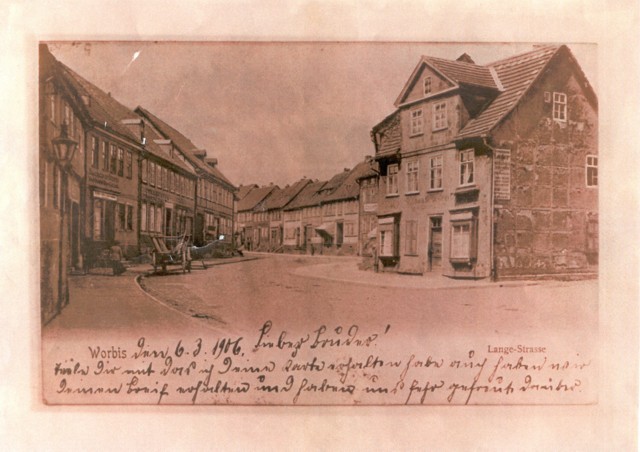 Worbis den 6.3.1906. Lieber Bruder!
Lange-Strasse
Teile Dir mit das ich deine Karte erhalten habe auch haben wir
deinen Breif erhalten und haben uns sehr gefreut darüber.